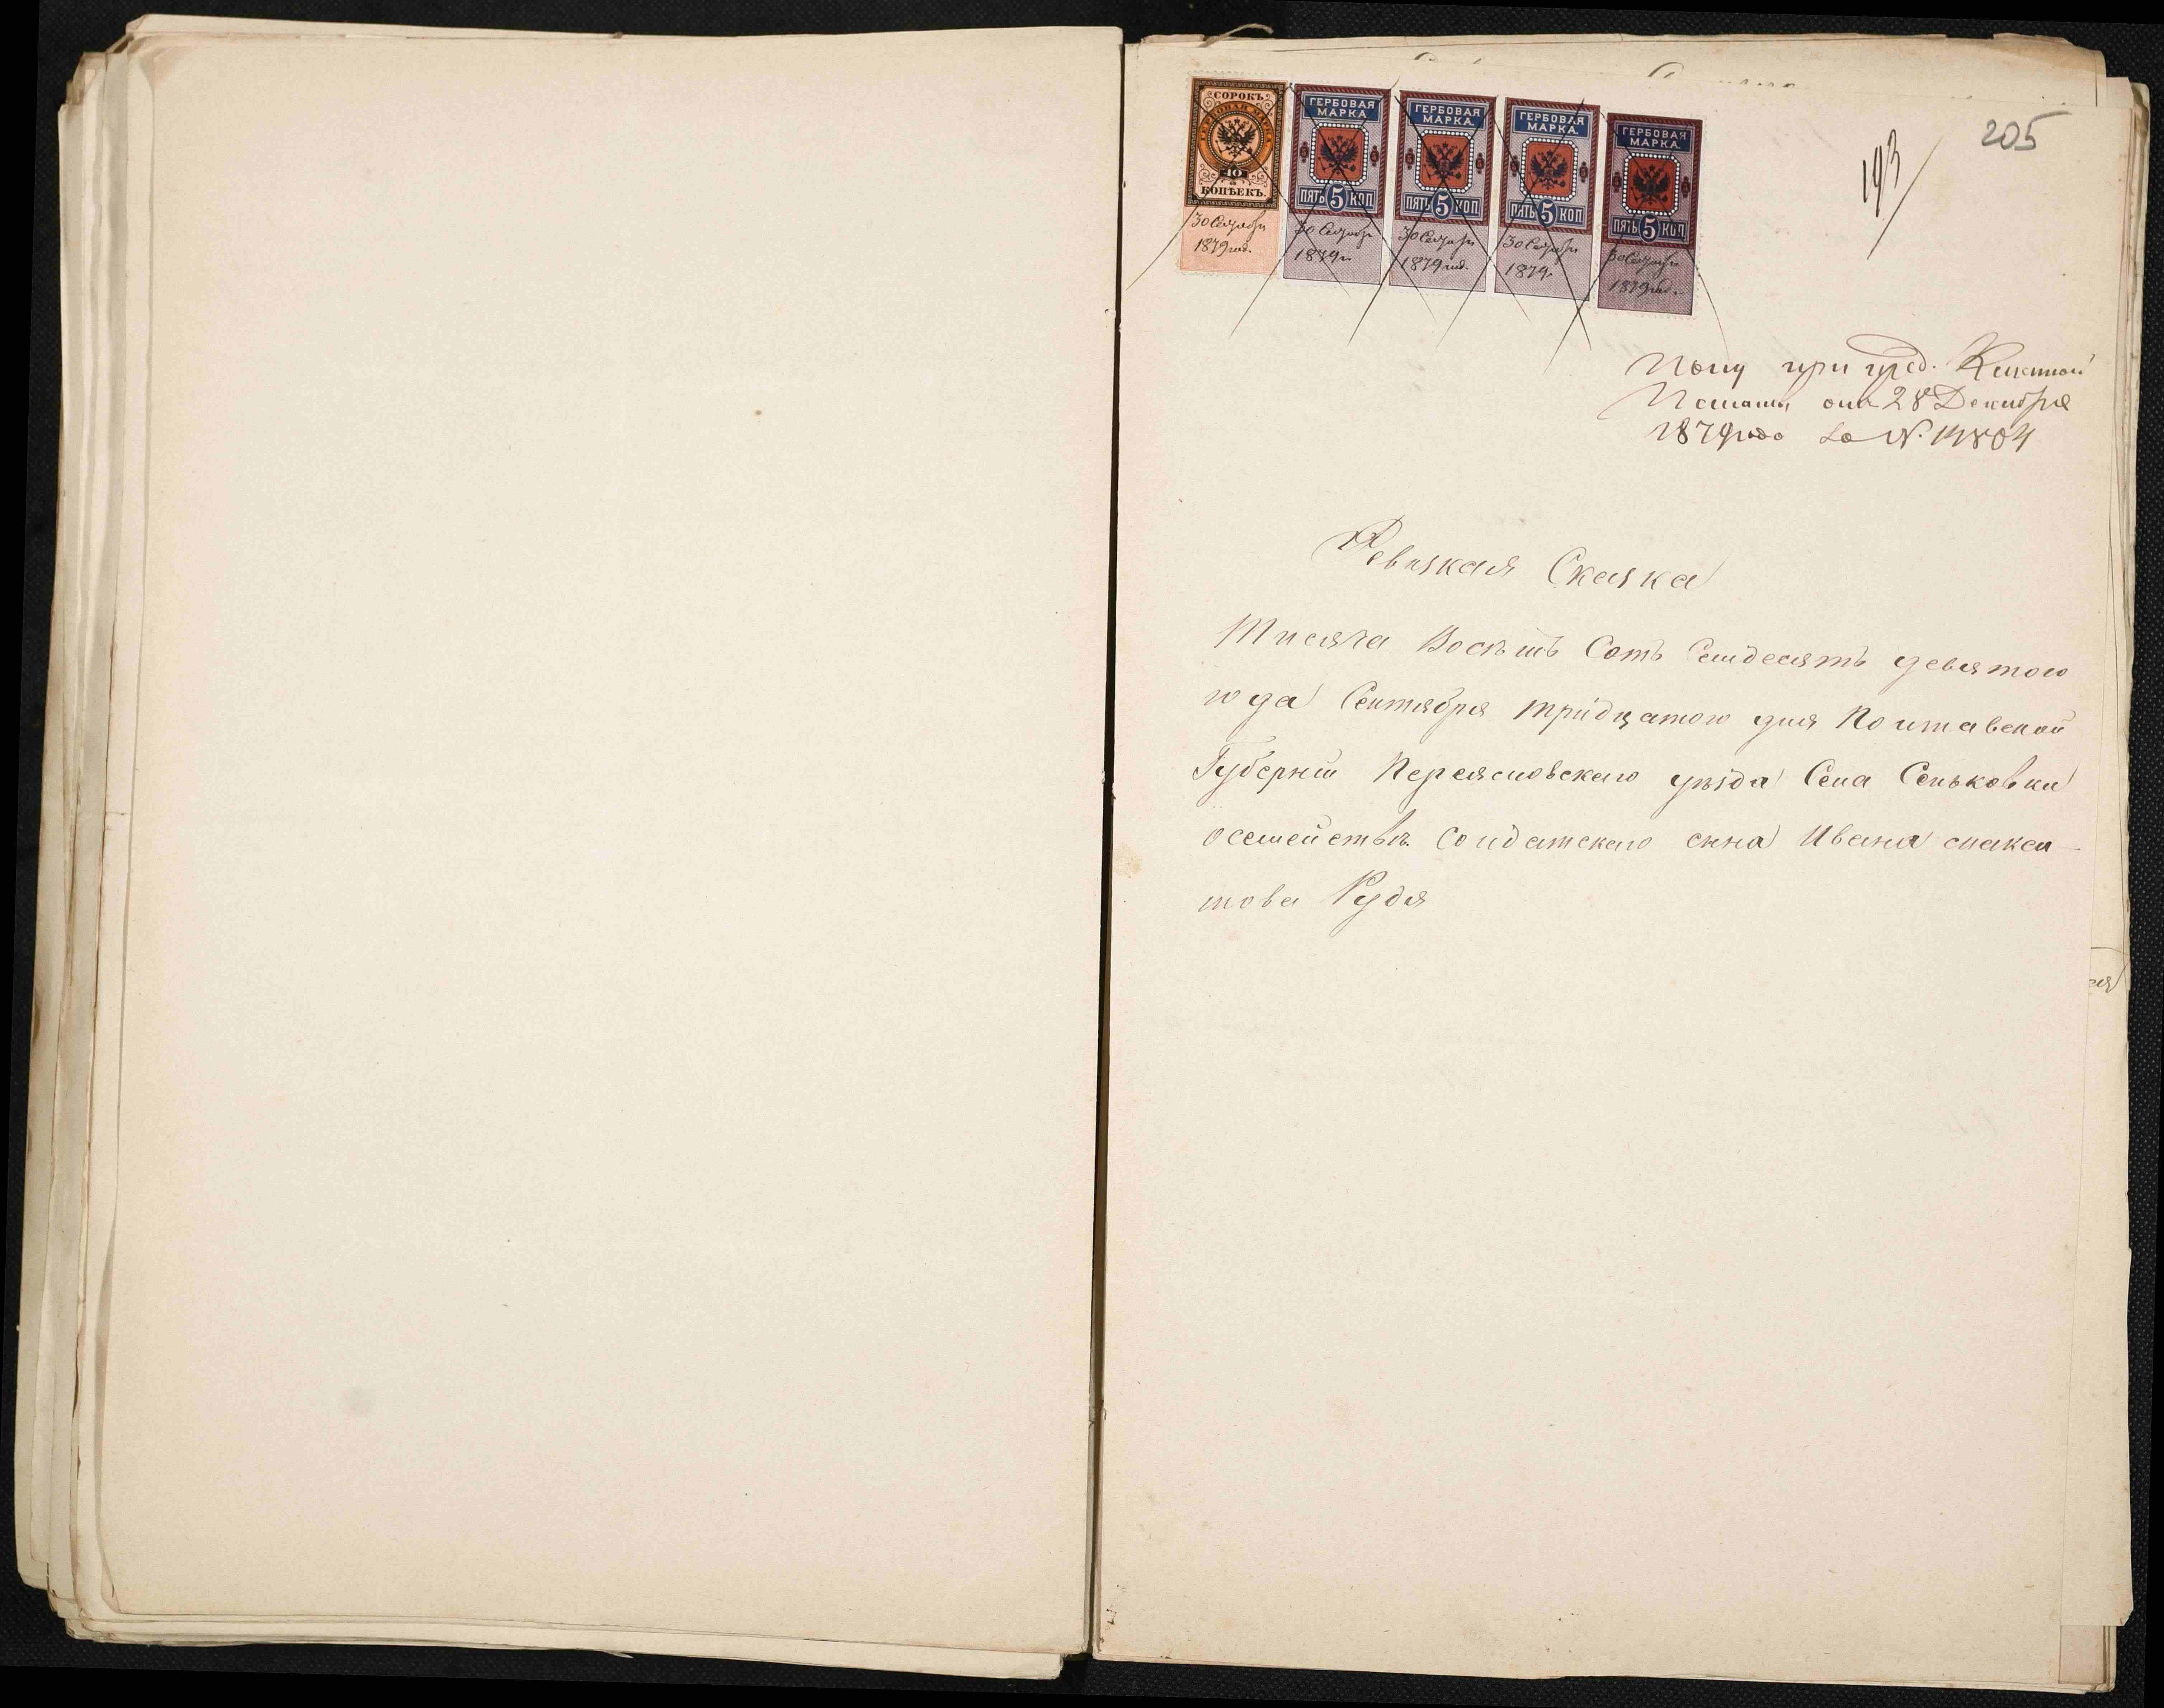 205
193
СОРОКЪ
ГЕРБОВАЯ МАРКА
40
КОПѢЕКЪ.
30 Сентября
1879 год.
ГЕРБОВАЯ
МАРКА
ПЯТЬ 5 КОП
30 Сентября
1879 г.
ГЕРБОВАЯ
МАРКА.
ПЯТЬ 5 КОП
30 Сентября
1879 год.
ГЕРБОВАЯ
МАРКА.
ПЯТЬ 5 КОП
30 Сентября
1879 г.
ГЕРБОВАЯ
МАРКА.
ПЯТЬ 5 КОП
30 Сентября
1879 год.
Полу при пред. Казенной
Палаты отъ 28 Декабря
1879 года за №
Ревизкая Сказка
Тисяча Восѣмъ Сотъ Семдесятъ девятого
года Сентября тридцатого дня Полтавской
Губерніи Переясловского уѣзда Села Сеньковки
осемействѣ солдатскаго сына Ивана
това Рудя